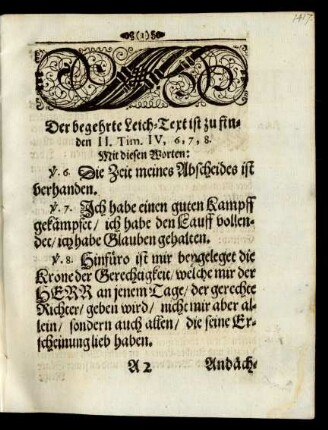 (1)
Der begehrte Leich-Text ist zu fin-
den II. Tim. IV, 6, 7, 8.
Mit diesen Worten:
ꝟ. 6. Die Zeit meines Abscheides ist
verhanden.
ꝟ. 7. Ich habe einen guten Kampff
gekämpfet/ ich habe den Lauff vollen-
det/ ich habe Glauben gehalten.
ꝟ. 8. Hinfüro ist mir beygeleget die
Krone der Gerechtigkeit/ welche mir der
HERR an jenem Tage/ der gerechte
Richter/ geben wird/ nicht mir aber al-
lein/ sondern auch allen/ die seine Er-
scheinung lieb haben.
A 2 Andäch-